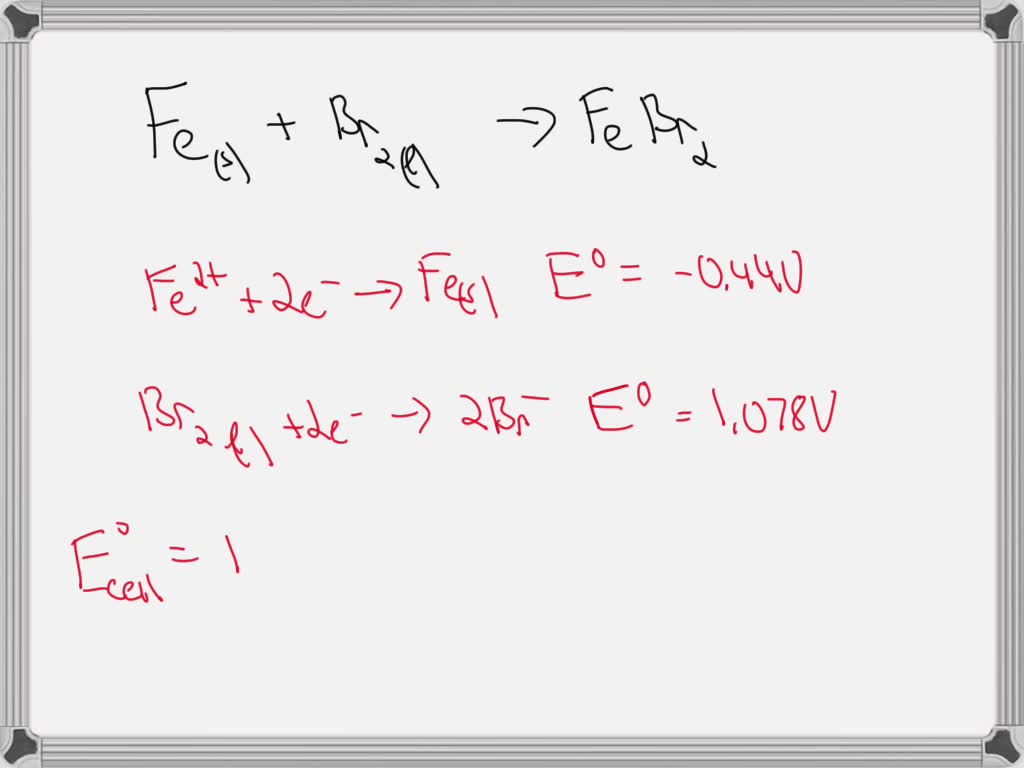 Fe(s) + Br2(l) → FeBr2
Fe2+ + 2e- → Fe(s) E0 = -0.44V
Br2(l) + 2e- → 2Br- E0 = 1.078V
E0cell = 1